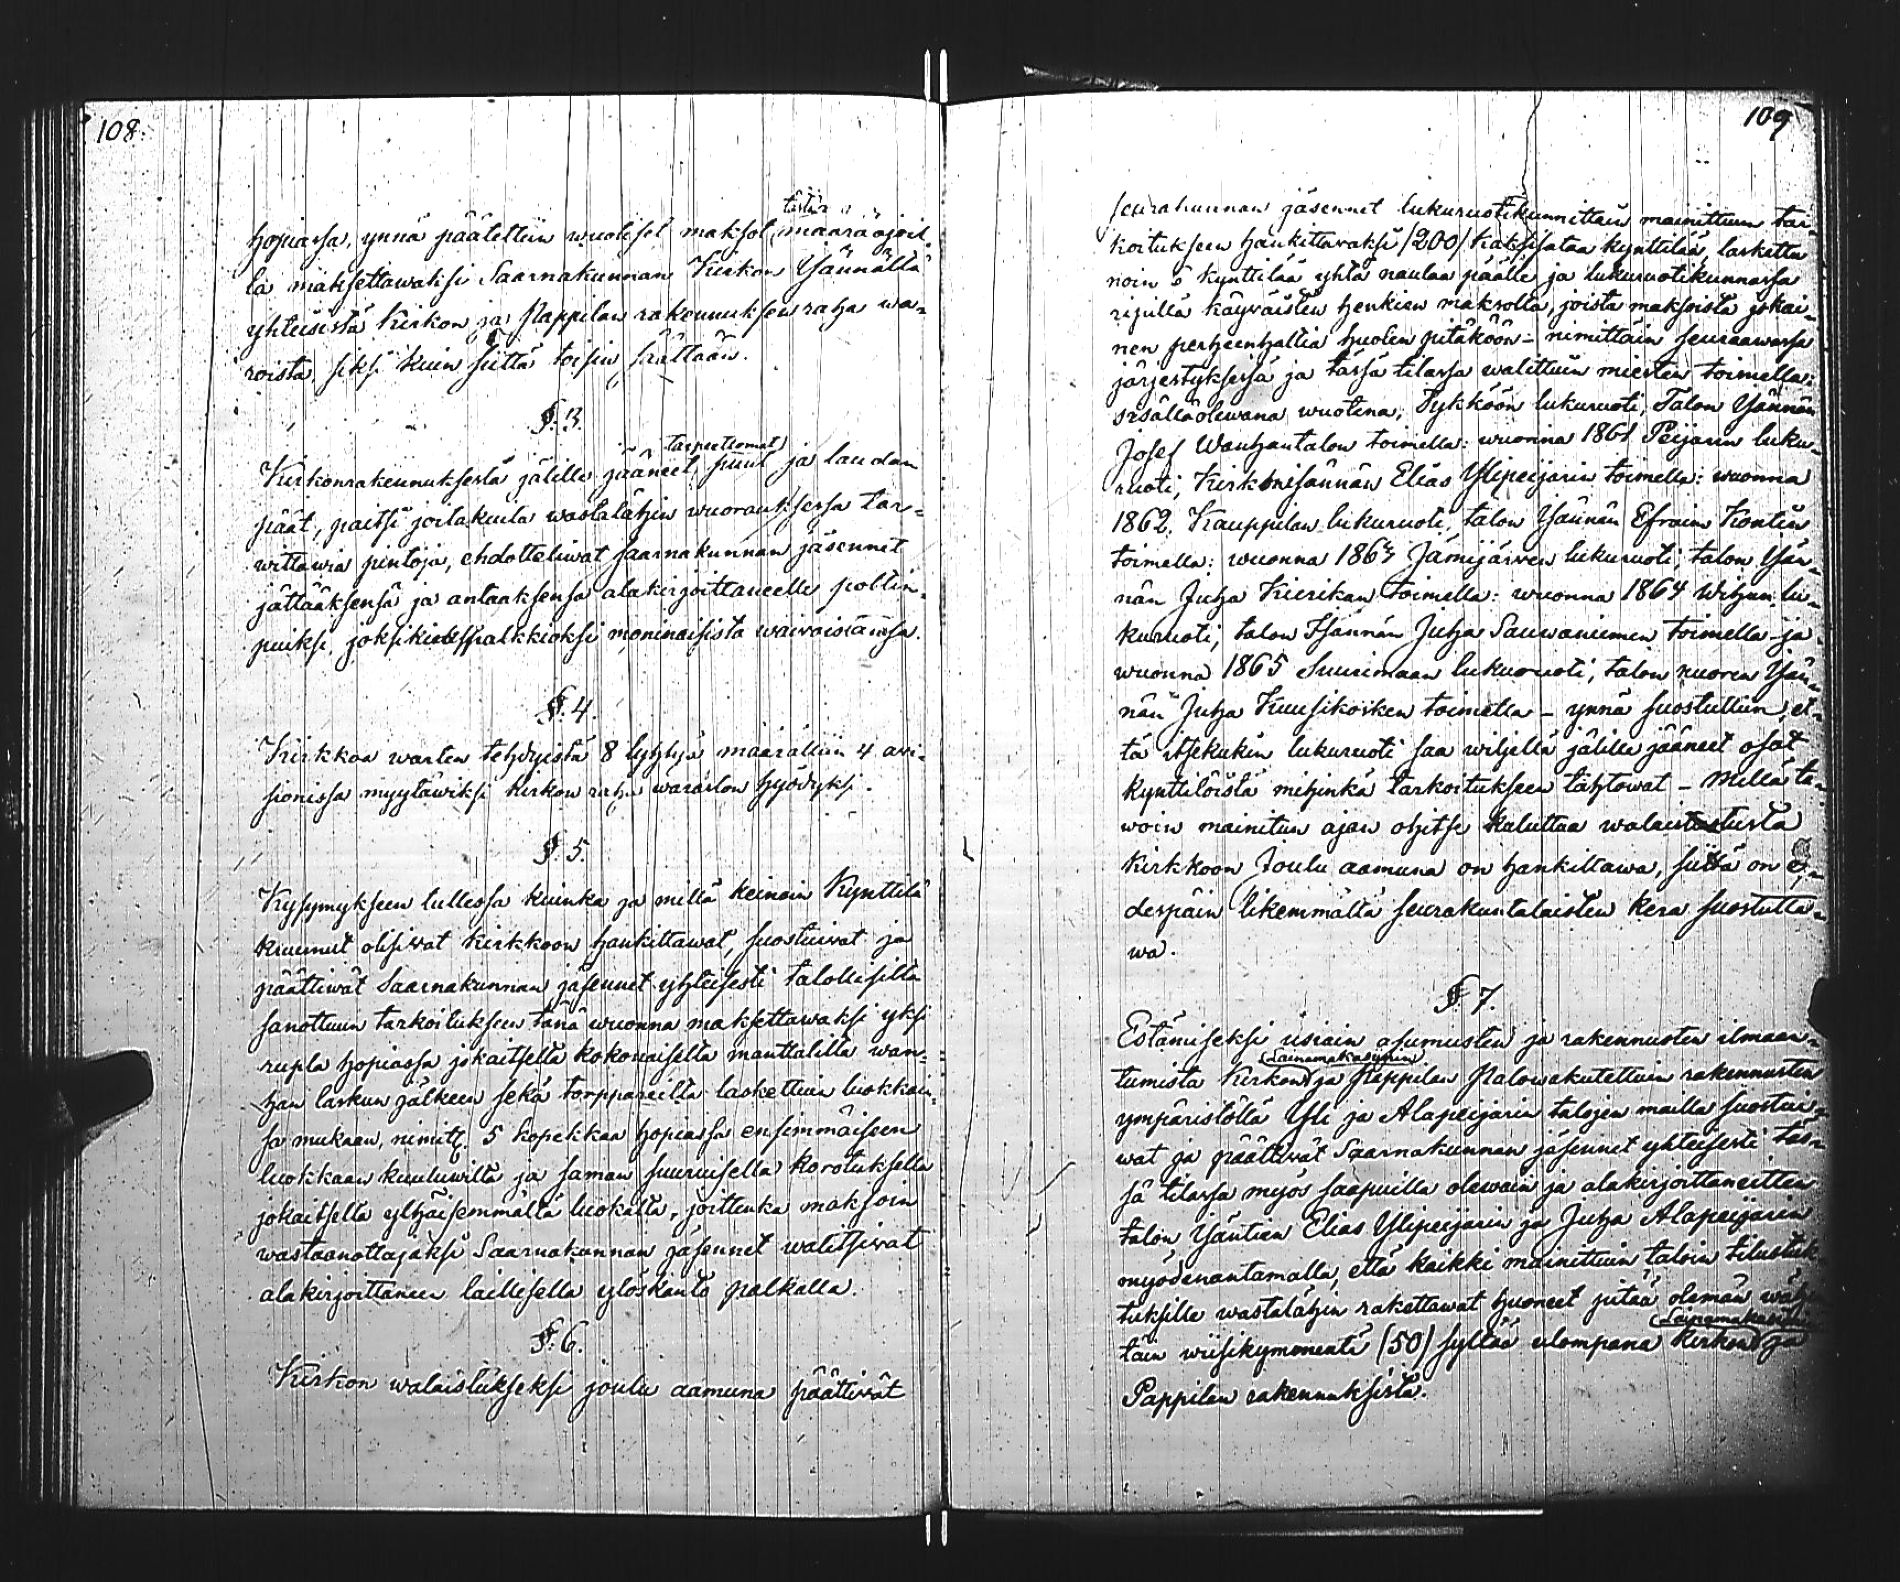 108.
tästä
hopiassa, ynnä päätettiin wuotiset maksot määräajoil-
la maksettawaksi Saarnakunnan Kirkon Ysännältä
yhteisistä Kirkon ja Pappilan rakennuksen raha wa-
roista, siksi kuin siitä toisin säättään.
§. 3.
tarpeettomat
Kirkonrakennuksesta jälille jääneet puut ja laudan
päät, paitsi joitakuita wastalähin wuorauksessa tar-
wittawia pintoja, ehdotteliwat saarnakunnan jäsennet
jättääksensä ja antaaksensa alakirjoittaneelle poltin-
puiksi, joksikin palkkioksi moninaisista waiwoistansa.
§. 4.
Kirkkoa warten tehdyistä 8 lyhtyjä määrättiin 4 auk-
sionissa myytäwiksi Kirkon raha waraston hyödyksi.
§. 5.
Kysymykseen tullessa kuinka ja millä keinoin Kynttilä
kruunut olisiwat Kirkkoon hankittawat, suostuiwat ja
päättiwät Saarnakunnan jäsennet yhteisesti talollisilta
sanottuun tarkoitukseen tänä wuonna maksettawaksi yksi
rupla hopiassa jokaitselta kokonaiselta manttalilta wan-
han laskun jälkeen sekä torppareilta laskettuin luokkain-
sa mukaan, nimitt. 5 kopekkaa hopiassa ensimmäiseen
luokkaan kuuluwilta ja saman suuruisella korotuksella
jokaitselta ylhäisemmältä luokalta, joittenka maksoin
wastaanottajaksi Saarnakunnan jäsennet walitsiwat
alakirjoittaneen laillisella ylöskanto palkalla.
§. 6.
Kirkon walaistukseksi joulu aamuna päättiwät
109
seurakunnan jäsennet lukuruotikunnittain mainittuun tar-
koitukseen hankittawaksi /200/ kaksisataa kynttilää, laskettu
noin 6 Kynttilää yhtä naulaa päälle ja lukuruotikunnassa
ripillä käywäisten henkien maksolla, joista maksoista jokai-
nen perheenhaltia huolen pitäköön - nimittäin seuraawassa
järjestyksessä ja tässä tilassa walittuin miesten toimella:
sisälläolewana wuotena, Tykköön lukuruoti, Talon Ysännän
Josef Wanhantalon toimella: wuonna 1861 Peijarin luku-
ruoti, Kirkonisännän Elias Ylipeijarin toimella: wuonna
1862. Kauppilan lukuruoti, talon Ysännän Efraim Kontin
toimella: wuonna 1863 Jämijärwen lukuruoti, talon Ysän-
nän Juha Kierikan toimella: wuonna 1864 Wihun lu-
kuruoti, talon Isännän Juha Sauwaniemen toimella - ja
wuonna 1865 Suurimaan lukuruoti, talon nuoren Ysän-
nän Juha Kuusikosken toimella - ynnä suostuttiin, et-
tä itsekukin lukuruoti saa wiljellä jälille jääneet osat
kynttilöistä mihinkä tarkoitukseen tahtowat - Millä ta-
woin mainitun ajan ohitse kuluttua walaistusta
Kirkkoon Joulu aamuna on hankittawa, siitä on e-
despäin likemmältä seurakuntalaisten kera suostutta-
wa.
§ 7.
Estämiseksi usiain asumusten ja rakennusten ilmaan-
(Lainamakasiinin)
tumista Kirkon ja Pappilan Palowakutettuin rakennusten
ympäristöllä Yli ja Alapeijarin talojen mailla suostui-
wat ja päättiwät Saarnakunnan jäsennet yhteisesti täs-
sä tilassa myös saapuilla olewain ja alakirjoittaneitten
talon Ysäntien Elias Ylipeijarin ja Juha Alapeijarin
myödenantamalla, että kaikki mainittuin taloin tilustuk-
tuksille wastalähin rakettawat huoneet pitää oleman wäh-
(Lainamakasiinin
täin wiisikymmentä (50) syltää ulompana Kirkon ja
Pappilan rakennuksista.